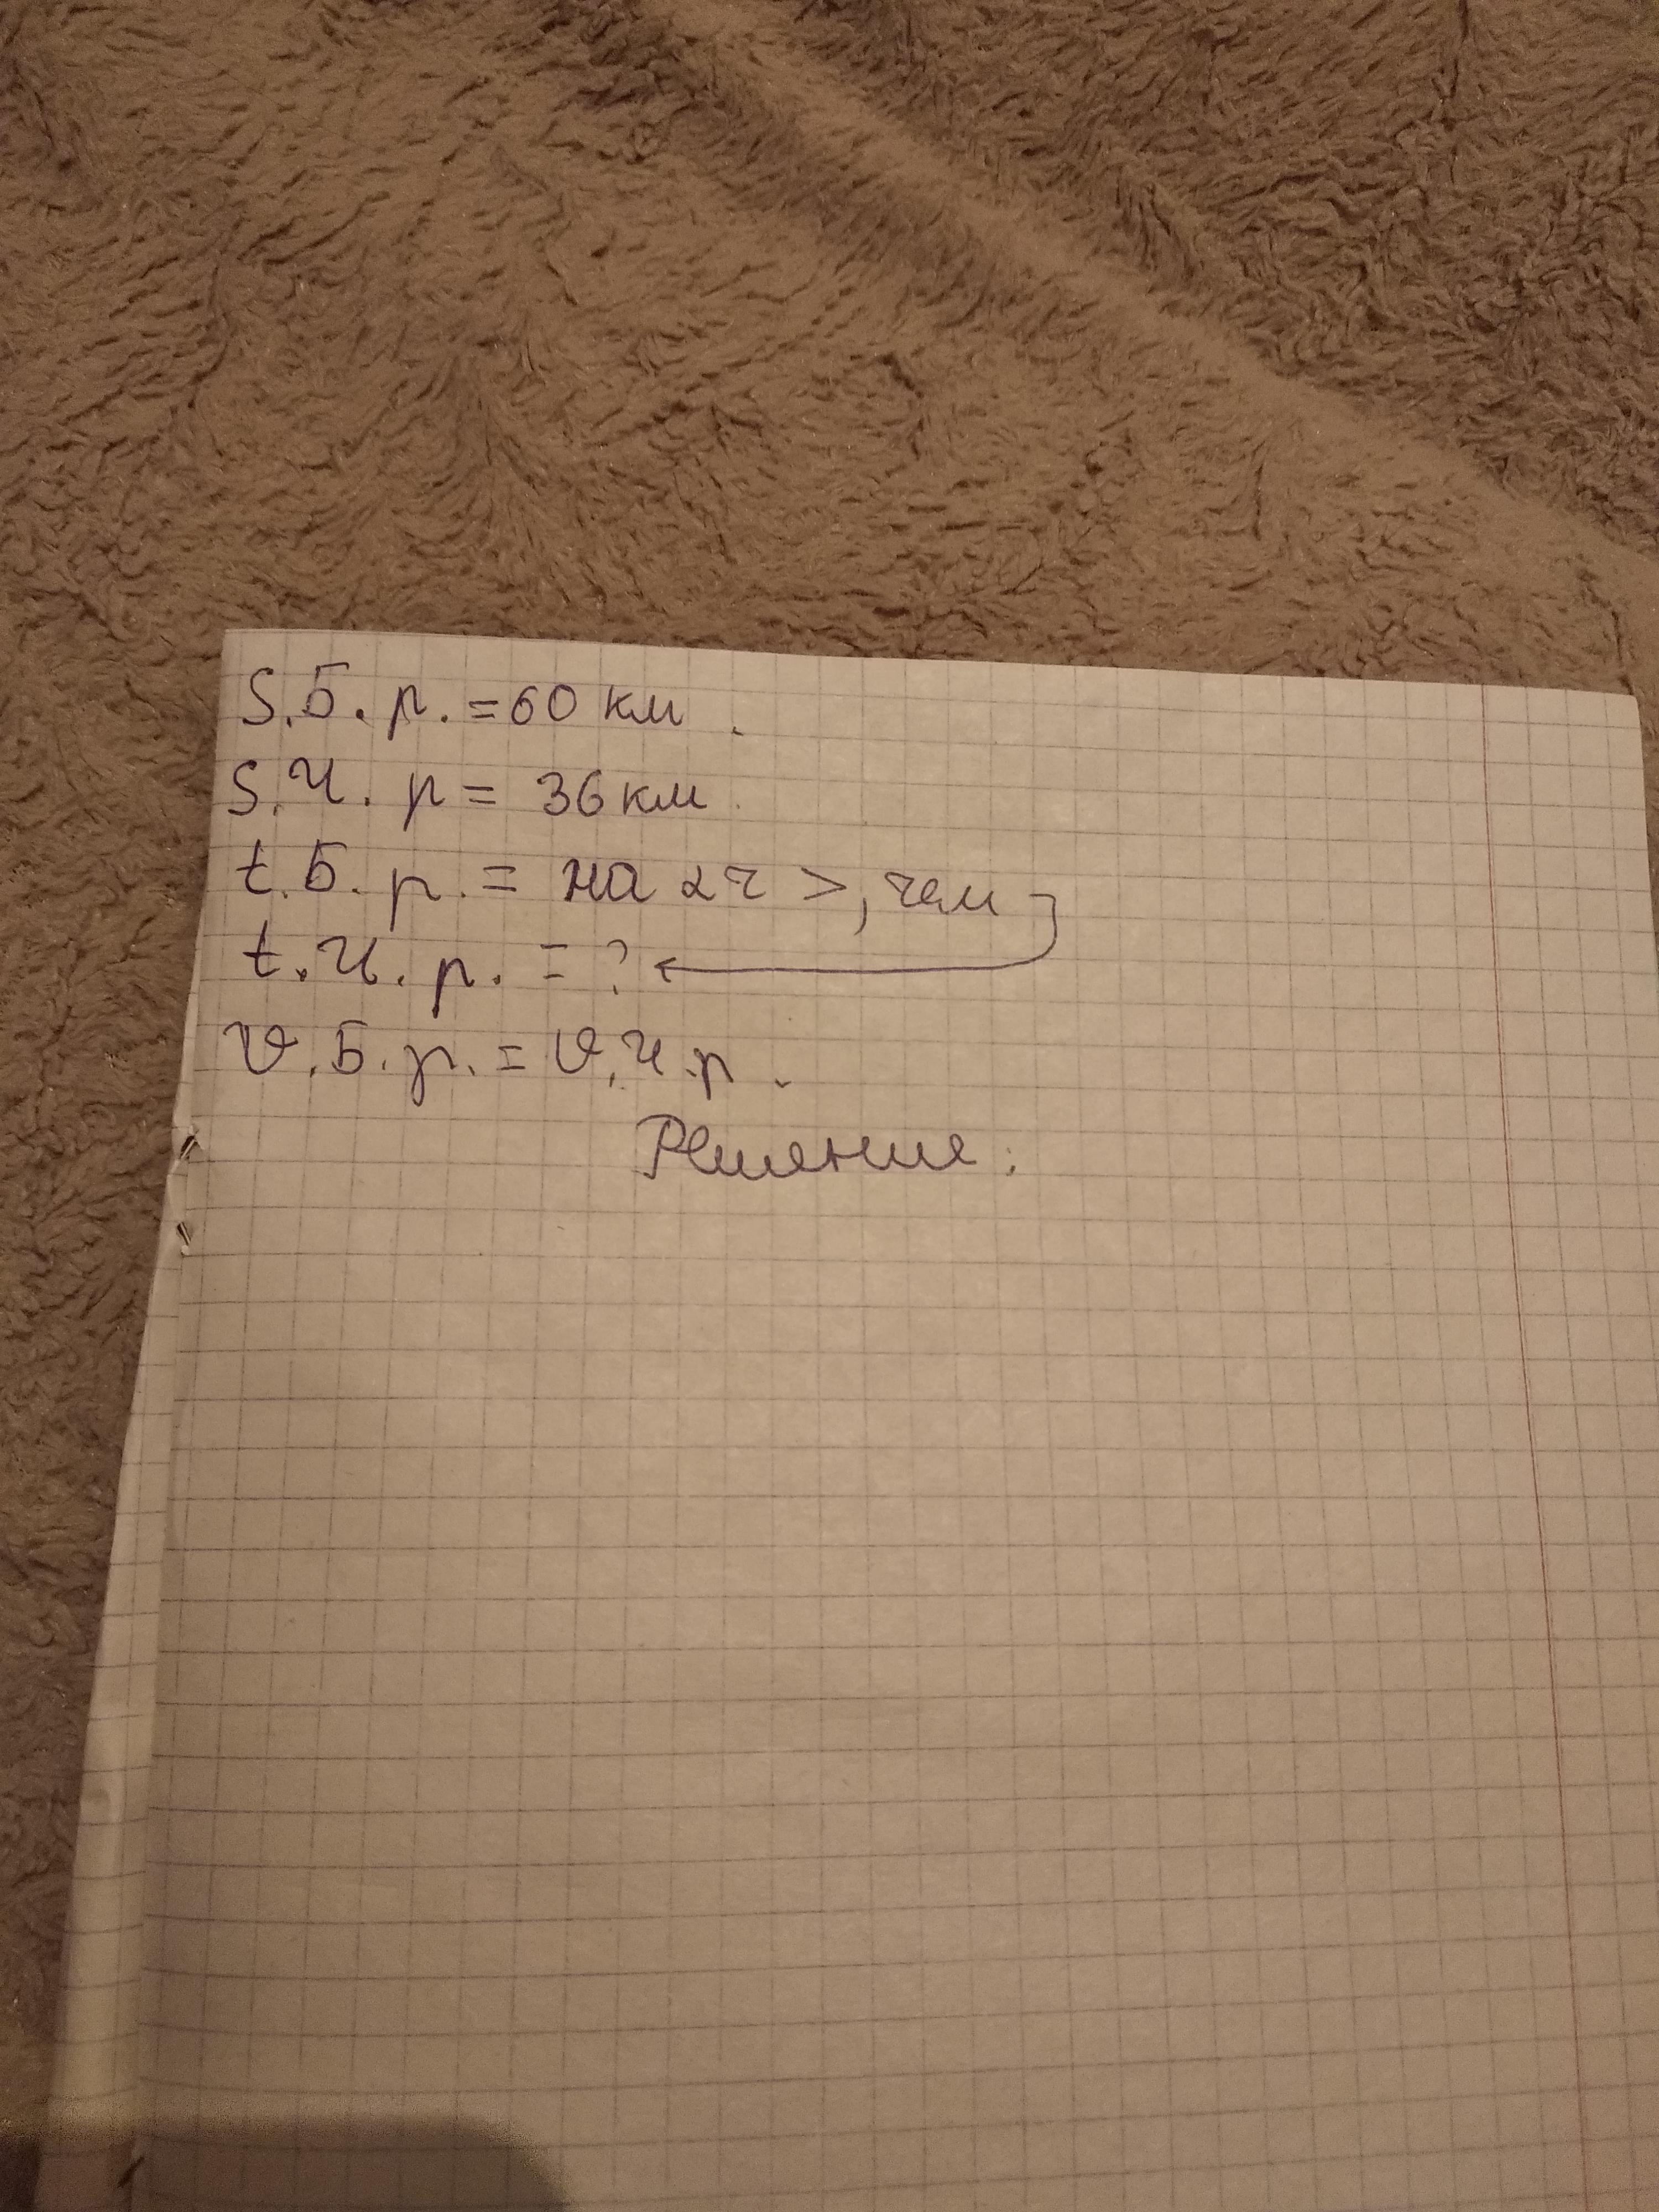 S.Б.р.=60 км.
S.Ч.р= 36км
t.Б.р.= на 2ч >, чем
t.Ч.р.=?
V.Б.р.=V.Ч.р.
Решение: